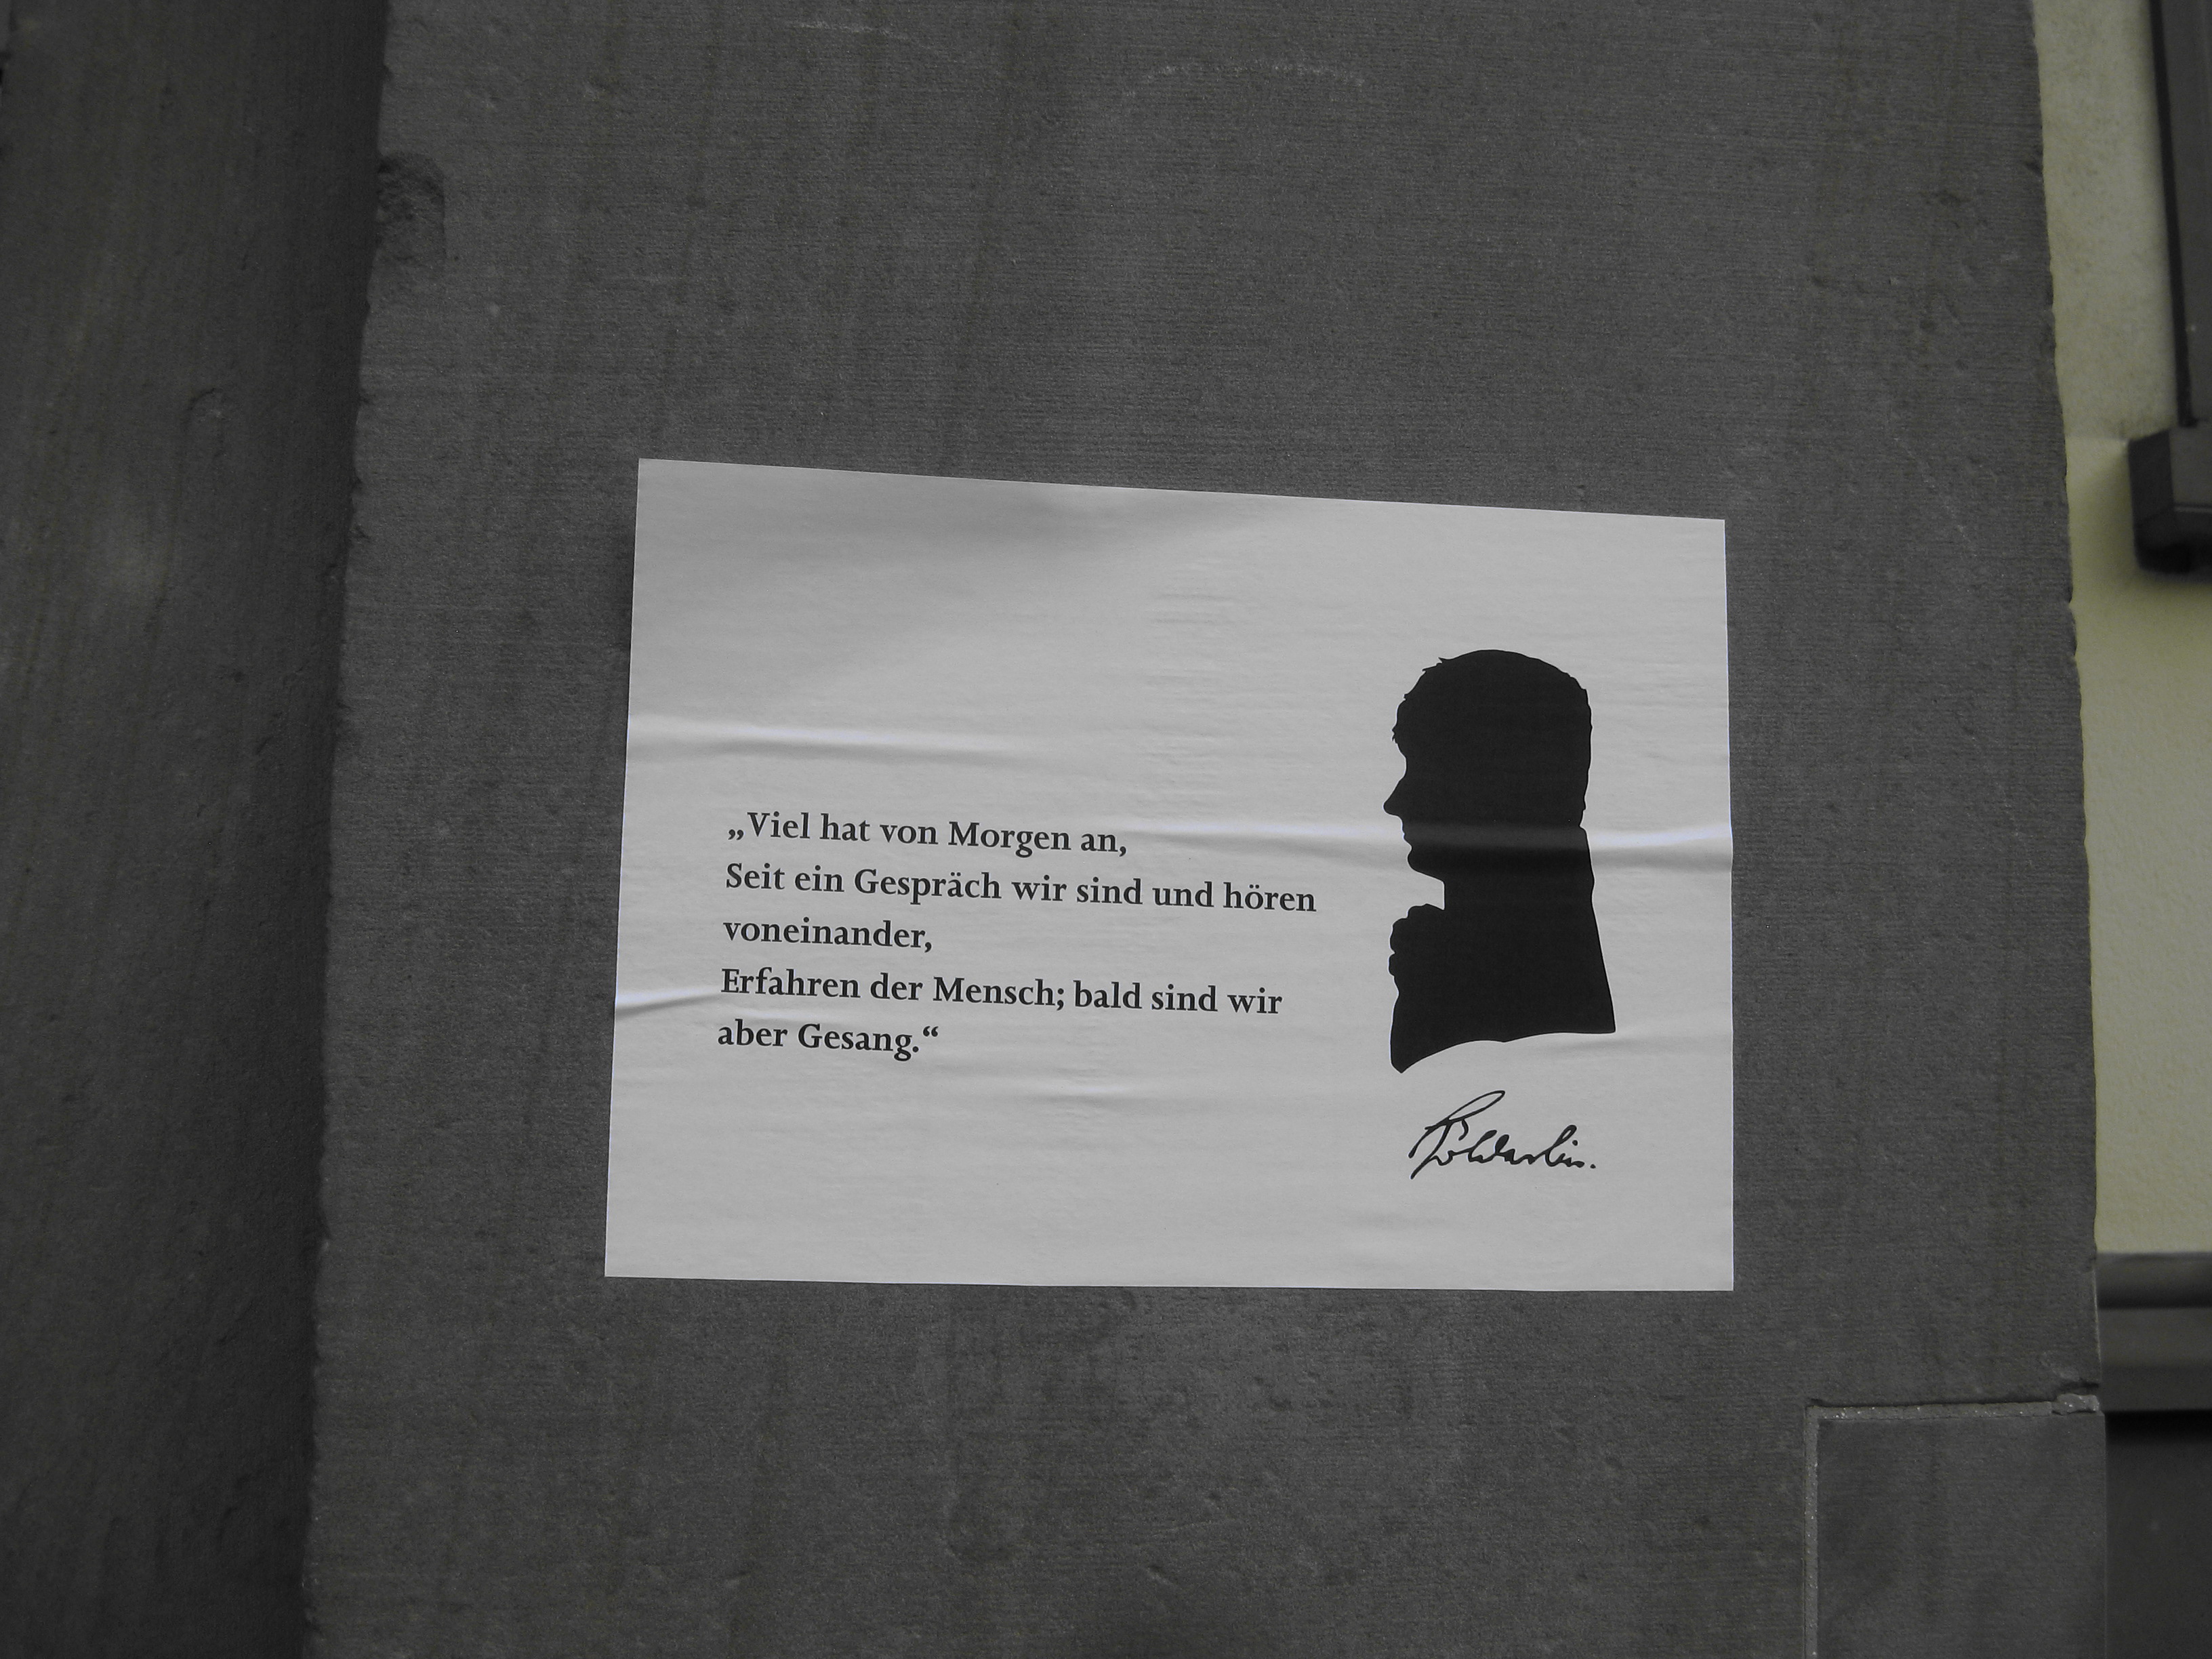 „Viel hat von Morgen an,
Seit ein Gespräch wir sind und hören
voneinander,
Erfahren der Mensch; bald sind wir
aber Gesang.“
Hölderlin.